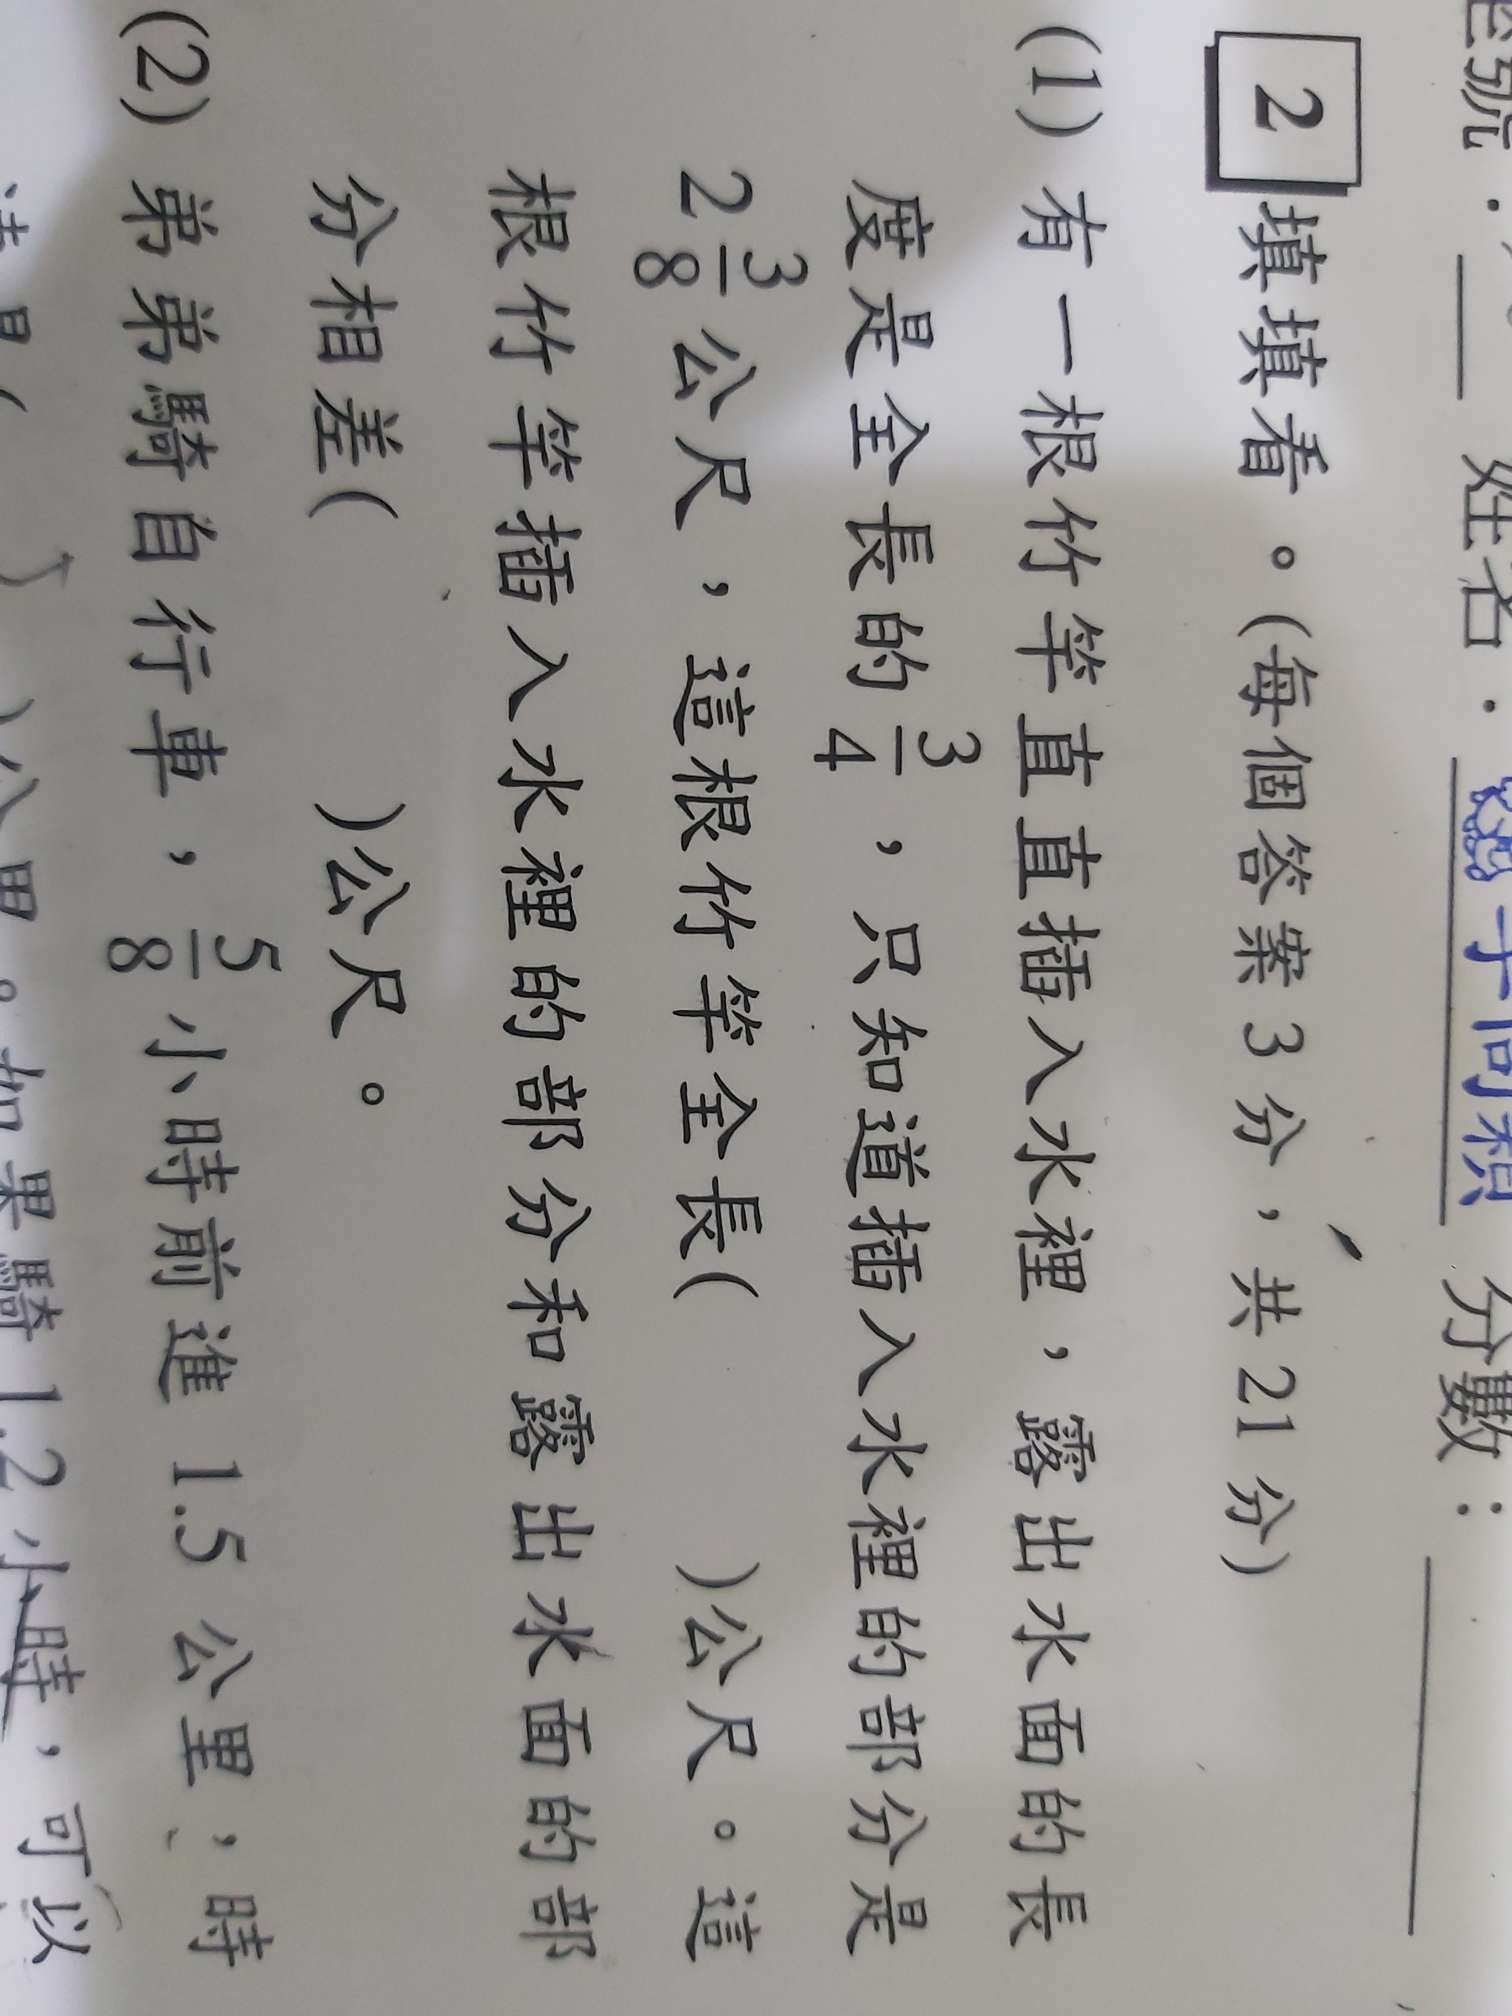 姓名: 分數:
2 填填看。(每個答案3分,共21分)
(1) 有一根竹竿直直插入水裡,露出水面的長
度是全長的3/4,只知道插入水裡的部分是
2 3/8公尺,這根竹竿全長( )公尺。這
根竹竿插入水裡的部分和露出水面的部
分相差( )公尺。
(2) 弟弟騎自行車,5/8小時前進1.5公里,時
)公里。如果騎1.2小時,可以